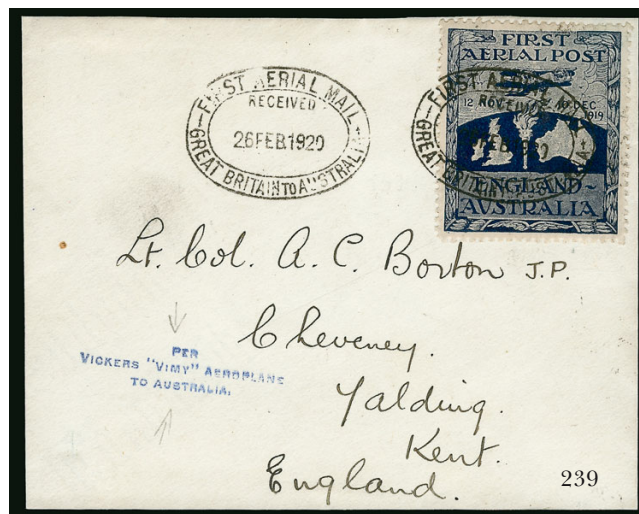 FIRST AERIAL MAIL
RECEIVED
26 FEB. 1920
GREAT BRITAIN TO AUSTRALIA
FIRST
AERIAL POST
12 NOV. 10 DEC
1919
ENGLAND~
AUSTRALIA
Lt. Col. A. C. Borton J.P.
Cheveney.
Yalding.
Kent.
England.
PER
VICKERS "VIMY" AEROPLANE
TO AUSTRALIA.
239